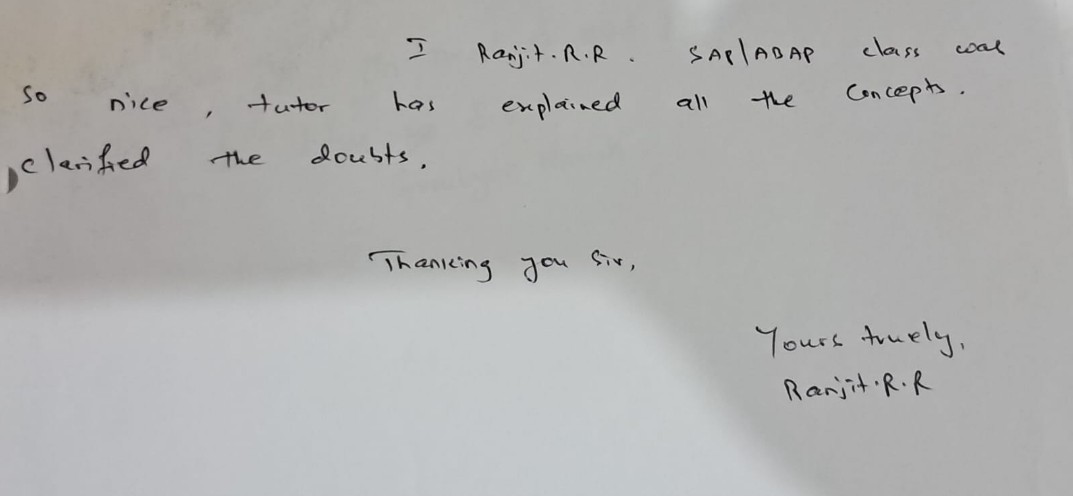 I Ranjit.R.R. SAP/ABAP class was
so nice, tutor has explained all the concepts.
clarified the doubts.
Thanking you Sir,
Yours truely,
Ranjit.R.R